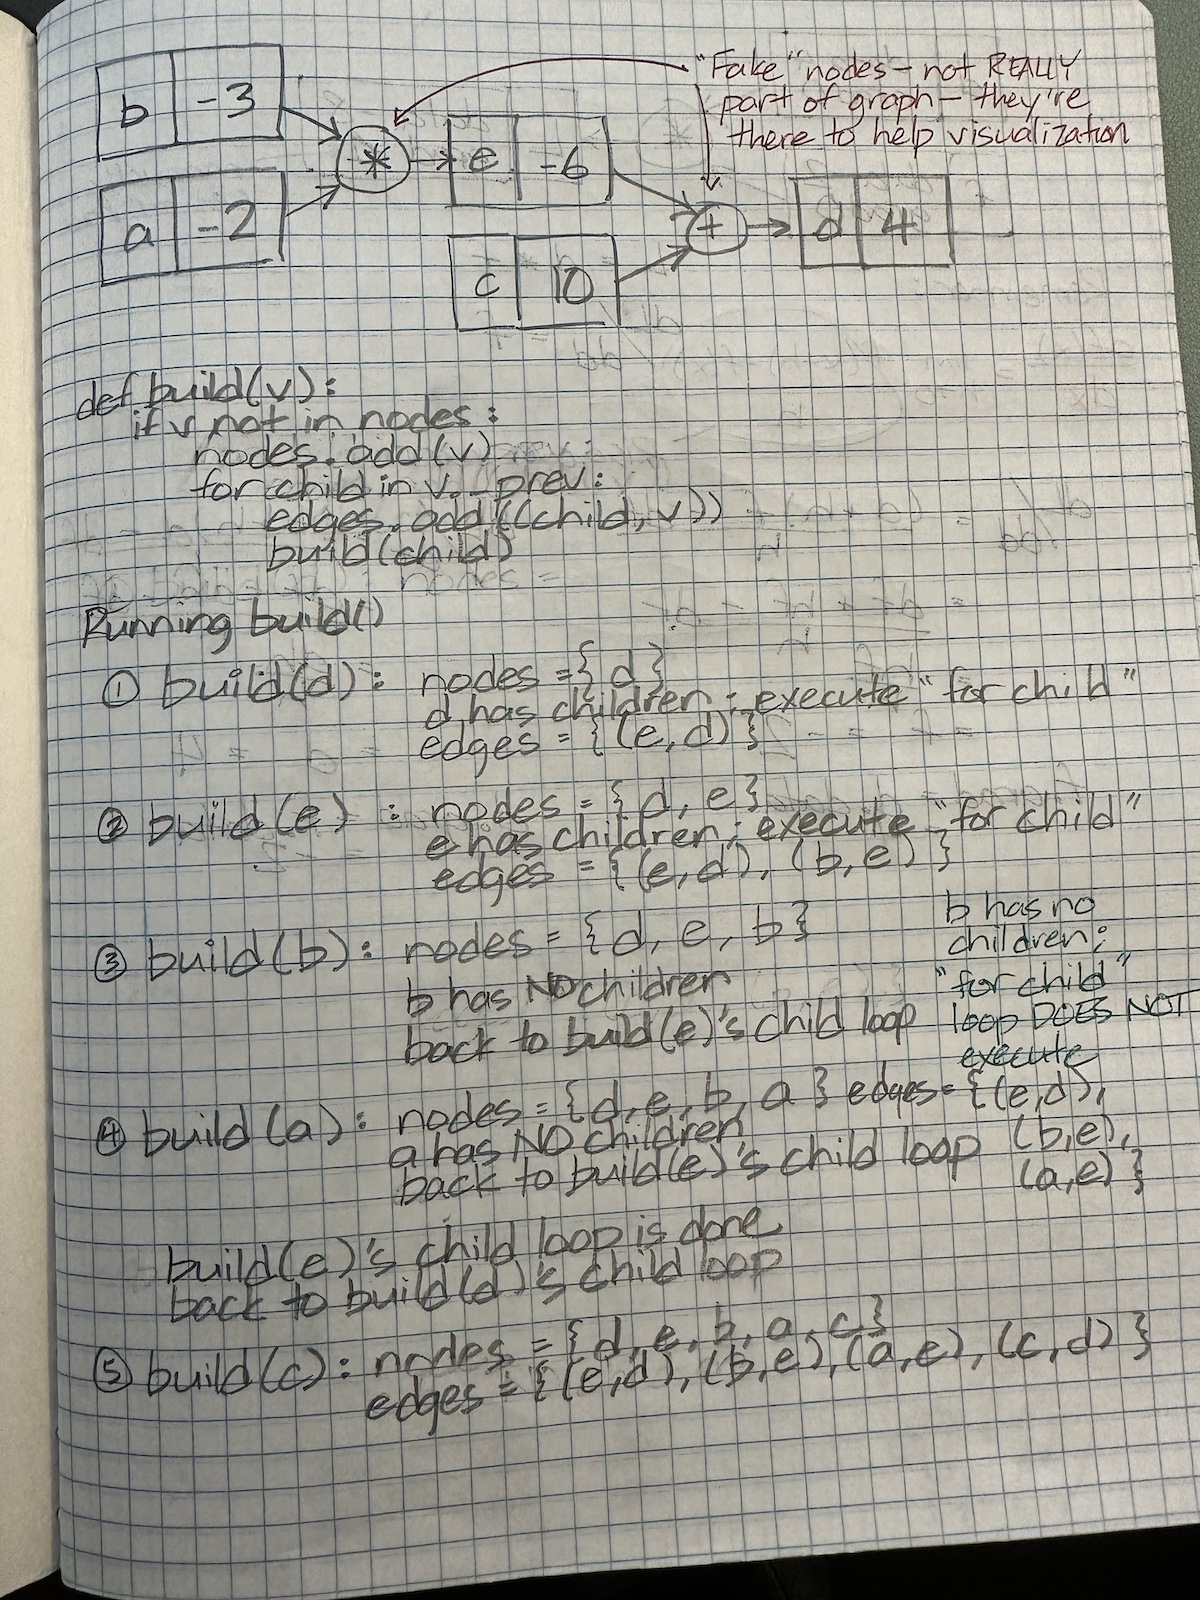 b -3
a -2
*
e -6
c 10
+
d 4
"Fake" nodes - not REALLY
part of graph - they're
there to help visualization
def build(v):
if v not in nodes:
nodes.add(v)
for child in v._prev:
edges.add((child, v))
build(child)
Running build()
① build(d): nodes = {d}
d has children; execute "for child"
edges = {(e,d)}
② build(e): nodes = {d, e}
e has children; execute "for child"
edges = {(e,d), (b,e)}
③ build(b): nodes = {d, e, b}
b has NO children
back to build(e)'s child loop
b has no
children;
"for child"
loop DOES NOT
execute
④ build(a): nodes = {d, e, b, a} edges = {(e,d),
a has NO children (b,e),
back to build(e)'s child loop (a,e)}
build(e)'s child loop is done
back to build(d)'s child loop
⑤ build(c): nodes = {d, e, b, a, c}
edges = {(e,d), (b,e), (a,e), (c,d)}